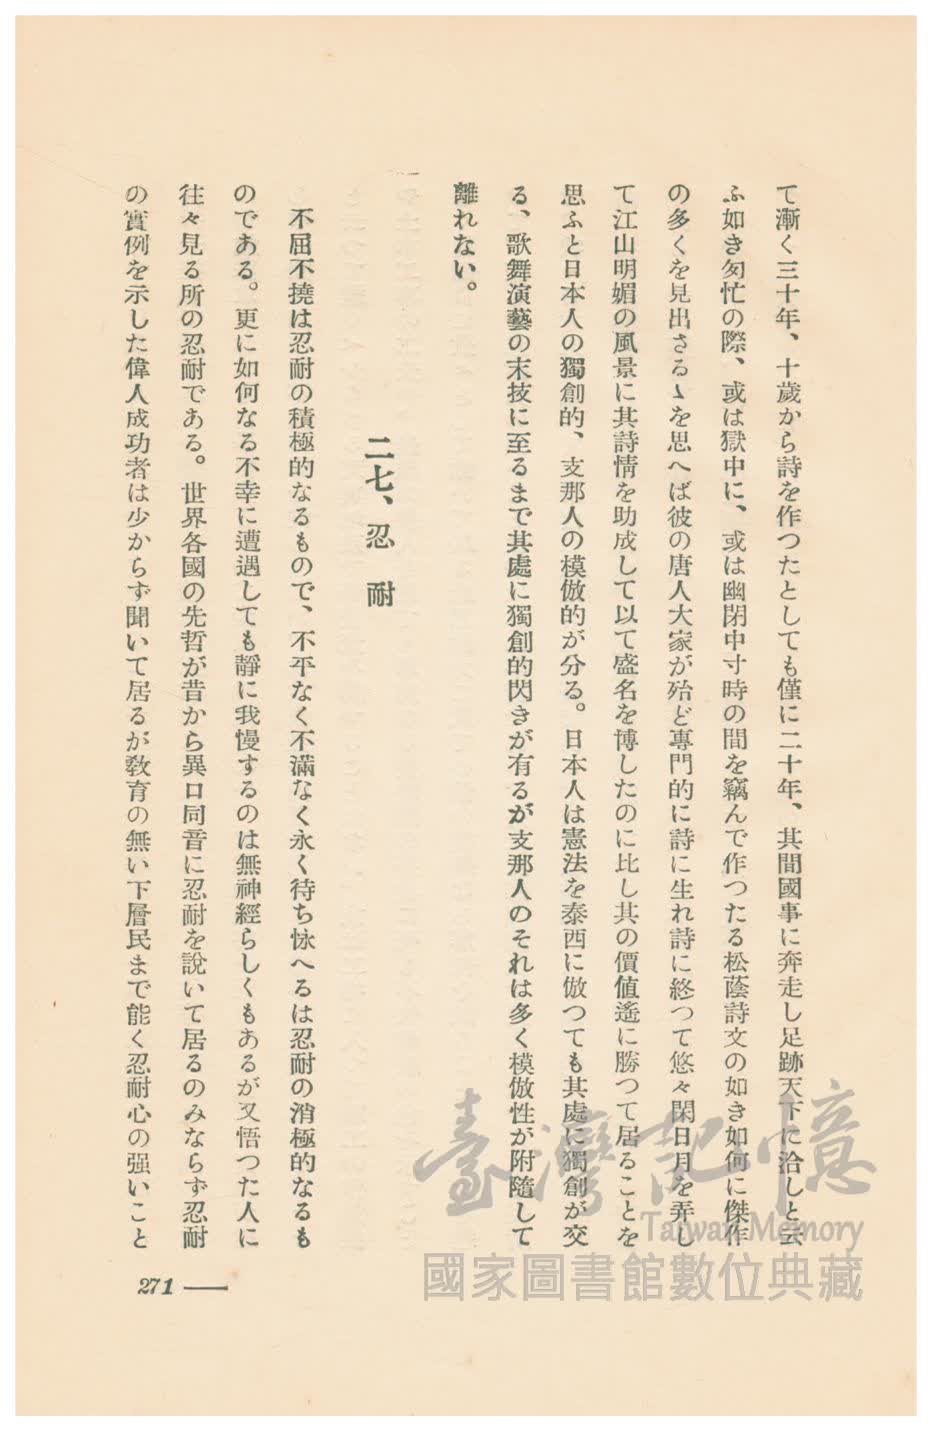 て漸く三十年、十歲から詩を作つたとしても僅に二十年、其間國事に奔走し足跡天下に洽しと云
ふ如き匆忙の際、或は獄中に、或は幽閉中寸時の間を竊んで作つたる松蔭詩文の如き如何に傑作
の多くを見出さるゝを思へば彼の唐人大家が殆ど專門的に詩に生れ詩に終つて悠々閑日月を弄し
て江山明媚の風景に其詩情を助成して以て盛名を博したのに比し其の價値遙に勝つて居ることを
思ふと日本人の獨創的、支那人の模倣的が分る。日本人は憲法を泰西に倣つても其處に獨創が交
る、歌舞演藝の末技に至るまで其處に獨創的閃きが有るが支那人のそれは多く模倣性が附隨して
離れない。
二七、忍耐
不屈不撓は忍耐の積極的なるもので、不平なく不滿なく永く待ち怺へるは忍耐の消極的なるも
のである。更に如何なる不幸に遭遇しても靜に我慢するのは無神經らしくもあるが又悟つた人に
往々見る所の忍耐である。世界各國の先哲が昔から異口同音に忍耐を說いて居るのみならず忍耐
の實例を示した偉人成功者は少からず聞いて居るが敎育の無い下層民まで能く忍耐心の强いこと
271
臺灣記憶
Taiwan Memory
國家圖書館數位典藏